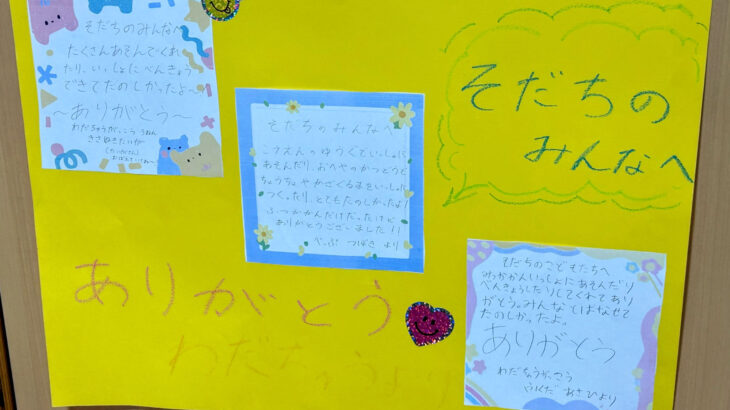 そだちのみんなへ
たくさんあそんでくれ
たり、いっしょにべんきょう
できてたのしかったよ〜
〜ありがとう〜
わだちゅうがっこう 1ねん
きさぬきたいが
おぼえていてね〜
そだちのみんなへ
こうえんのゆうぐでいっしょに
あそんだり、おへやのかつどうで
ちょうちょやかざぐるまをいっしょに
つくったり、とてもたのしかったよ!
ふつかかんだけだったけど
ありがとうございました!!
べっぷ つばき より
そだちの
みんなへ
ありがとう
わだちゅうより
そだちのこどもたちへ
みっかかんいっしょにあそんだり
べんきょうしたりしてくれてあり
がとう。みんなとはなせて
たのしかったよ。
ありがとう
わだちゅうがっこう
ふくだ あさひより